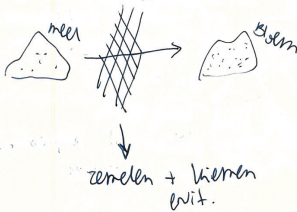 meel
Bloem
zemelen + kiemen
eruit.